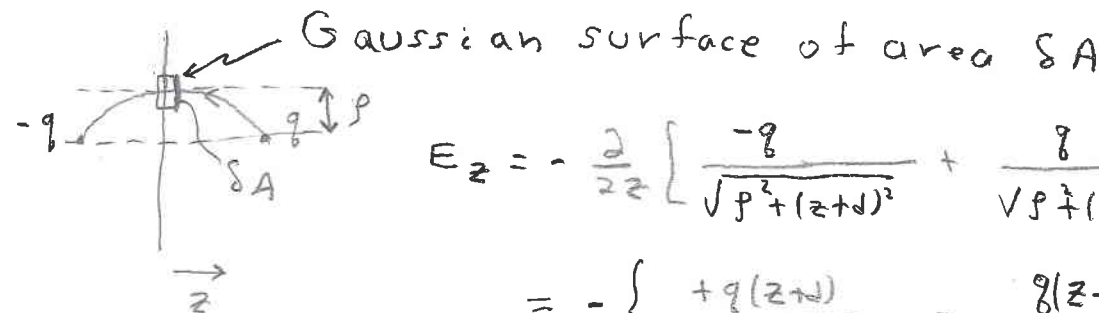 Gaussian surface of area δA
-q q ρ
δA
E_z = - ∂/∂z [ -q / √(ρ² + (z+d)²) + q / √(ρ² + (
z
= - [ +q(z+d) q(z-